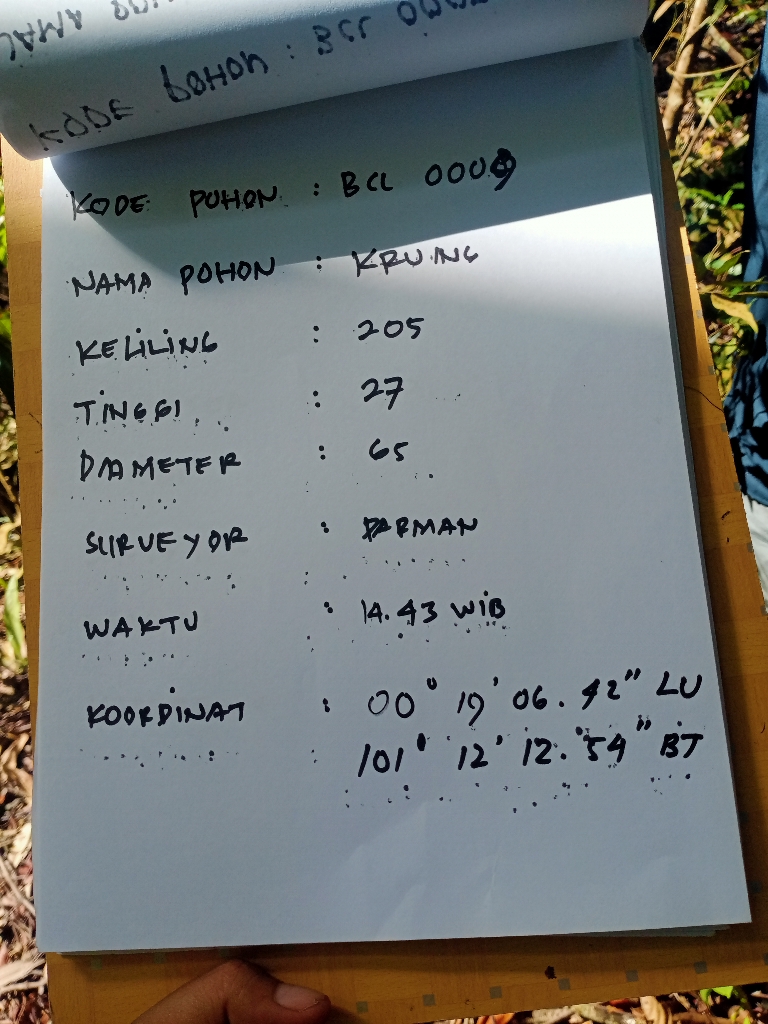 KODE POHON : BCL
KODE POHON : BCL 0009
NAMA POHON : KRUING
KELILING : 205
TINGGI : 27
DIAMETER : 65
SURVEYOR : PARMAN
WAKTU : 14.43 WIB
KOORDINAT : 00° 19' 06.42" LU
101° 12' 12.54" BT